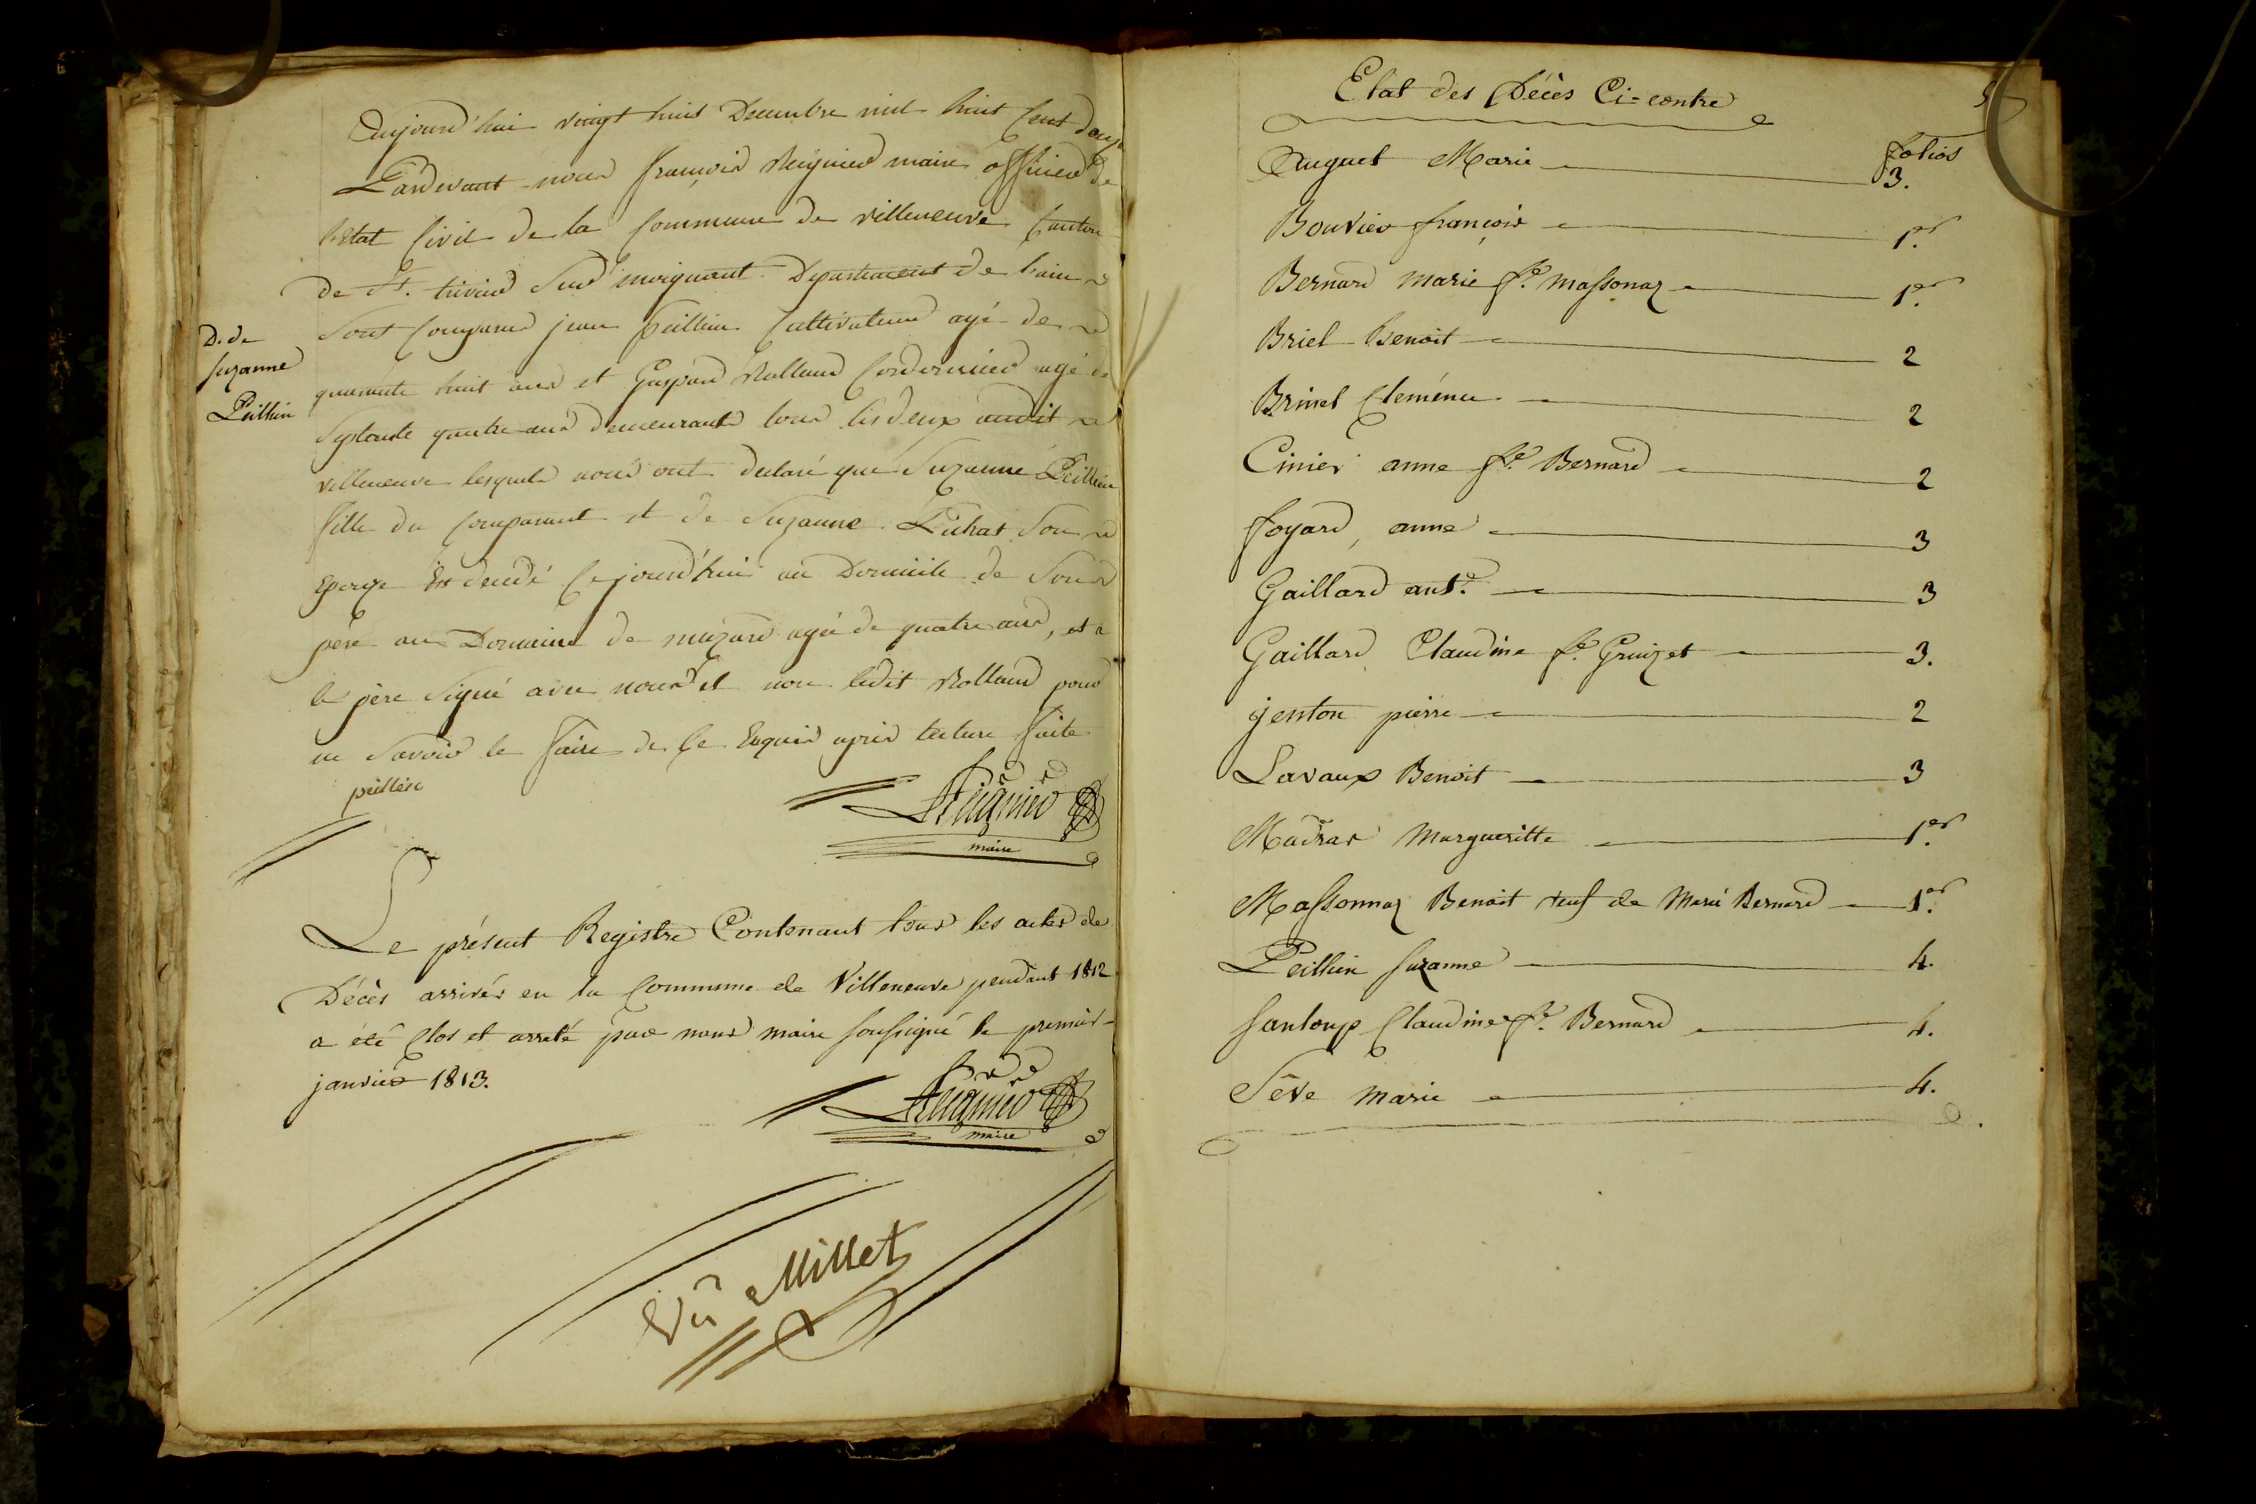 Aujourd'hui vingt huit Decembre mil huit Cent douze
Pardevant nous françois Reignier maire officier de
l'etat Civil de la Commune de villeneuve Canton
de St. trivier Sur moignant Departement de l'ain
D. de
Suzanne
Peillin
Sont Comparu jean peillin Cultivateur agé de
quarante huit ans et Gaspard Rolland Cordonnier agé de
Septante quatre ans demeurants tous les deux audit
villeneuve lesquels nous ont declaré que Suzanne Peillin
fille du Comparant et de Suzanne Pichat Son
Epouse Est decedé Cejourd'hui au Domicile de Son
père au Domaine de mazard agée de quatre ans, et a
le père Signé avec nous et non ledit Rolland pour
ne Savoir le faire de Ce Enquis après lecture faite
peillin
Reignier
maire
Le présent Registre Contenant tous les actes de
Décès arrivés en la Commune de Villeneuve pendant 1812
a été Clos et arreté par nous maire soussigné le premier
janvier 1813.
Reignier
maire
Vu Millet
5
Etat des Décès Ci=contre
folios
Auguet Marie 3.
Bouvier françois 1er.
Bernard marie fe. Massonaz 1er.
Briel Benoit 2
Brinel Clemence 2
Cinier anne fe. Bernard 2
foyard, anne 3
Gaillard ante. 3
Gaillard Claudine fe. Gruizet 3.
jenton pierre 2
Lavaux Benoit 3
Madras Margueritte 1er.
Massonnaz Benoit veuf de Marie Bernard 1er.
Peillin suzanne 4.
sanloup Claudine fe. Bernard 4.
Sève marie 4.